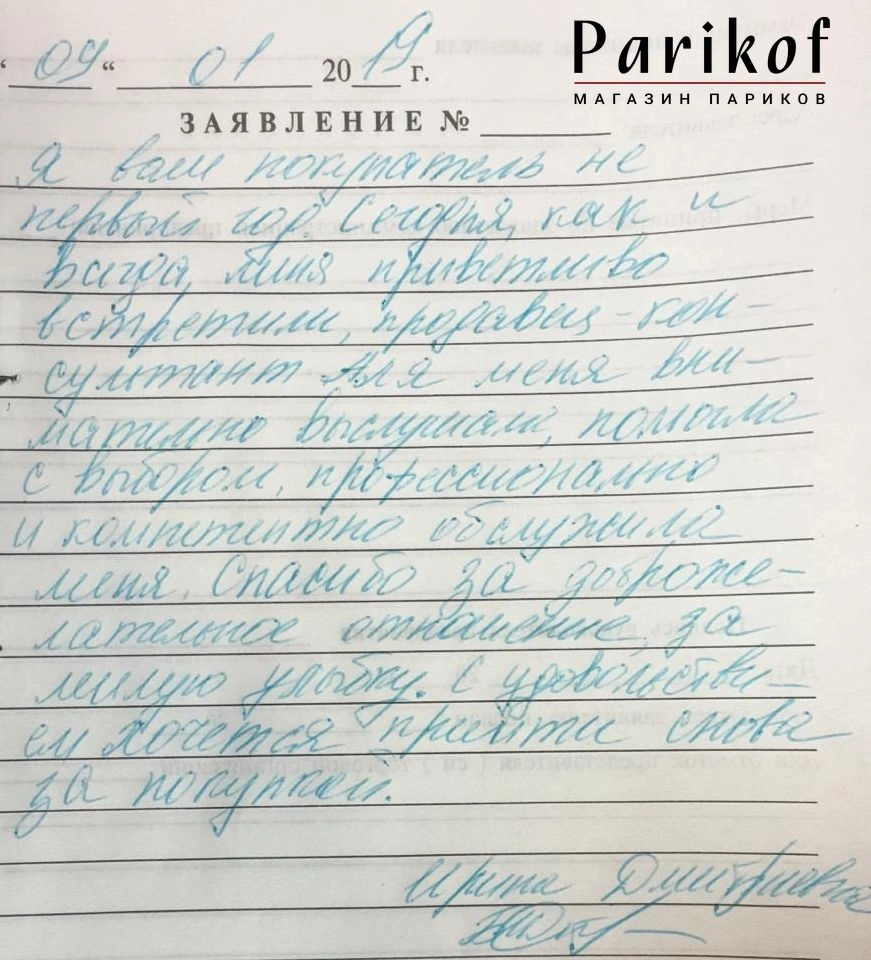 Parikof
МАГАЗИН ПАРИКОВ
"09" 01 2019 г.
ЗАЯВЛЕНИЕ №
Я ваш покупатель не
первый год. Сегодня, как и
всегда, меня приветливо
встретили, продавец-кон-
сультант Аля меня вни-
мательно выслушала, помогла
с выбором, профессионально
и компетентно обслужила
меня. Спасибо за доброже-
лательное отношение, за
милую улыбку. С удовольстви-
ем хочется прийти снова
за покупкой.
Ирина Дмитриевна